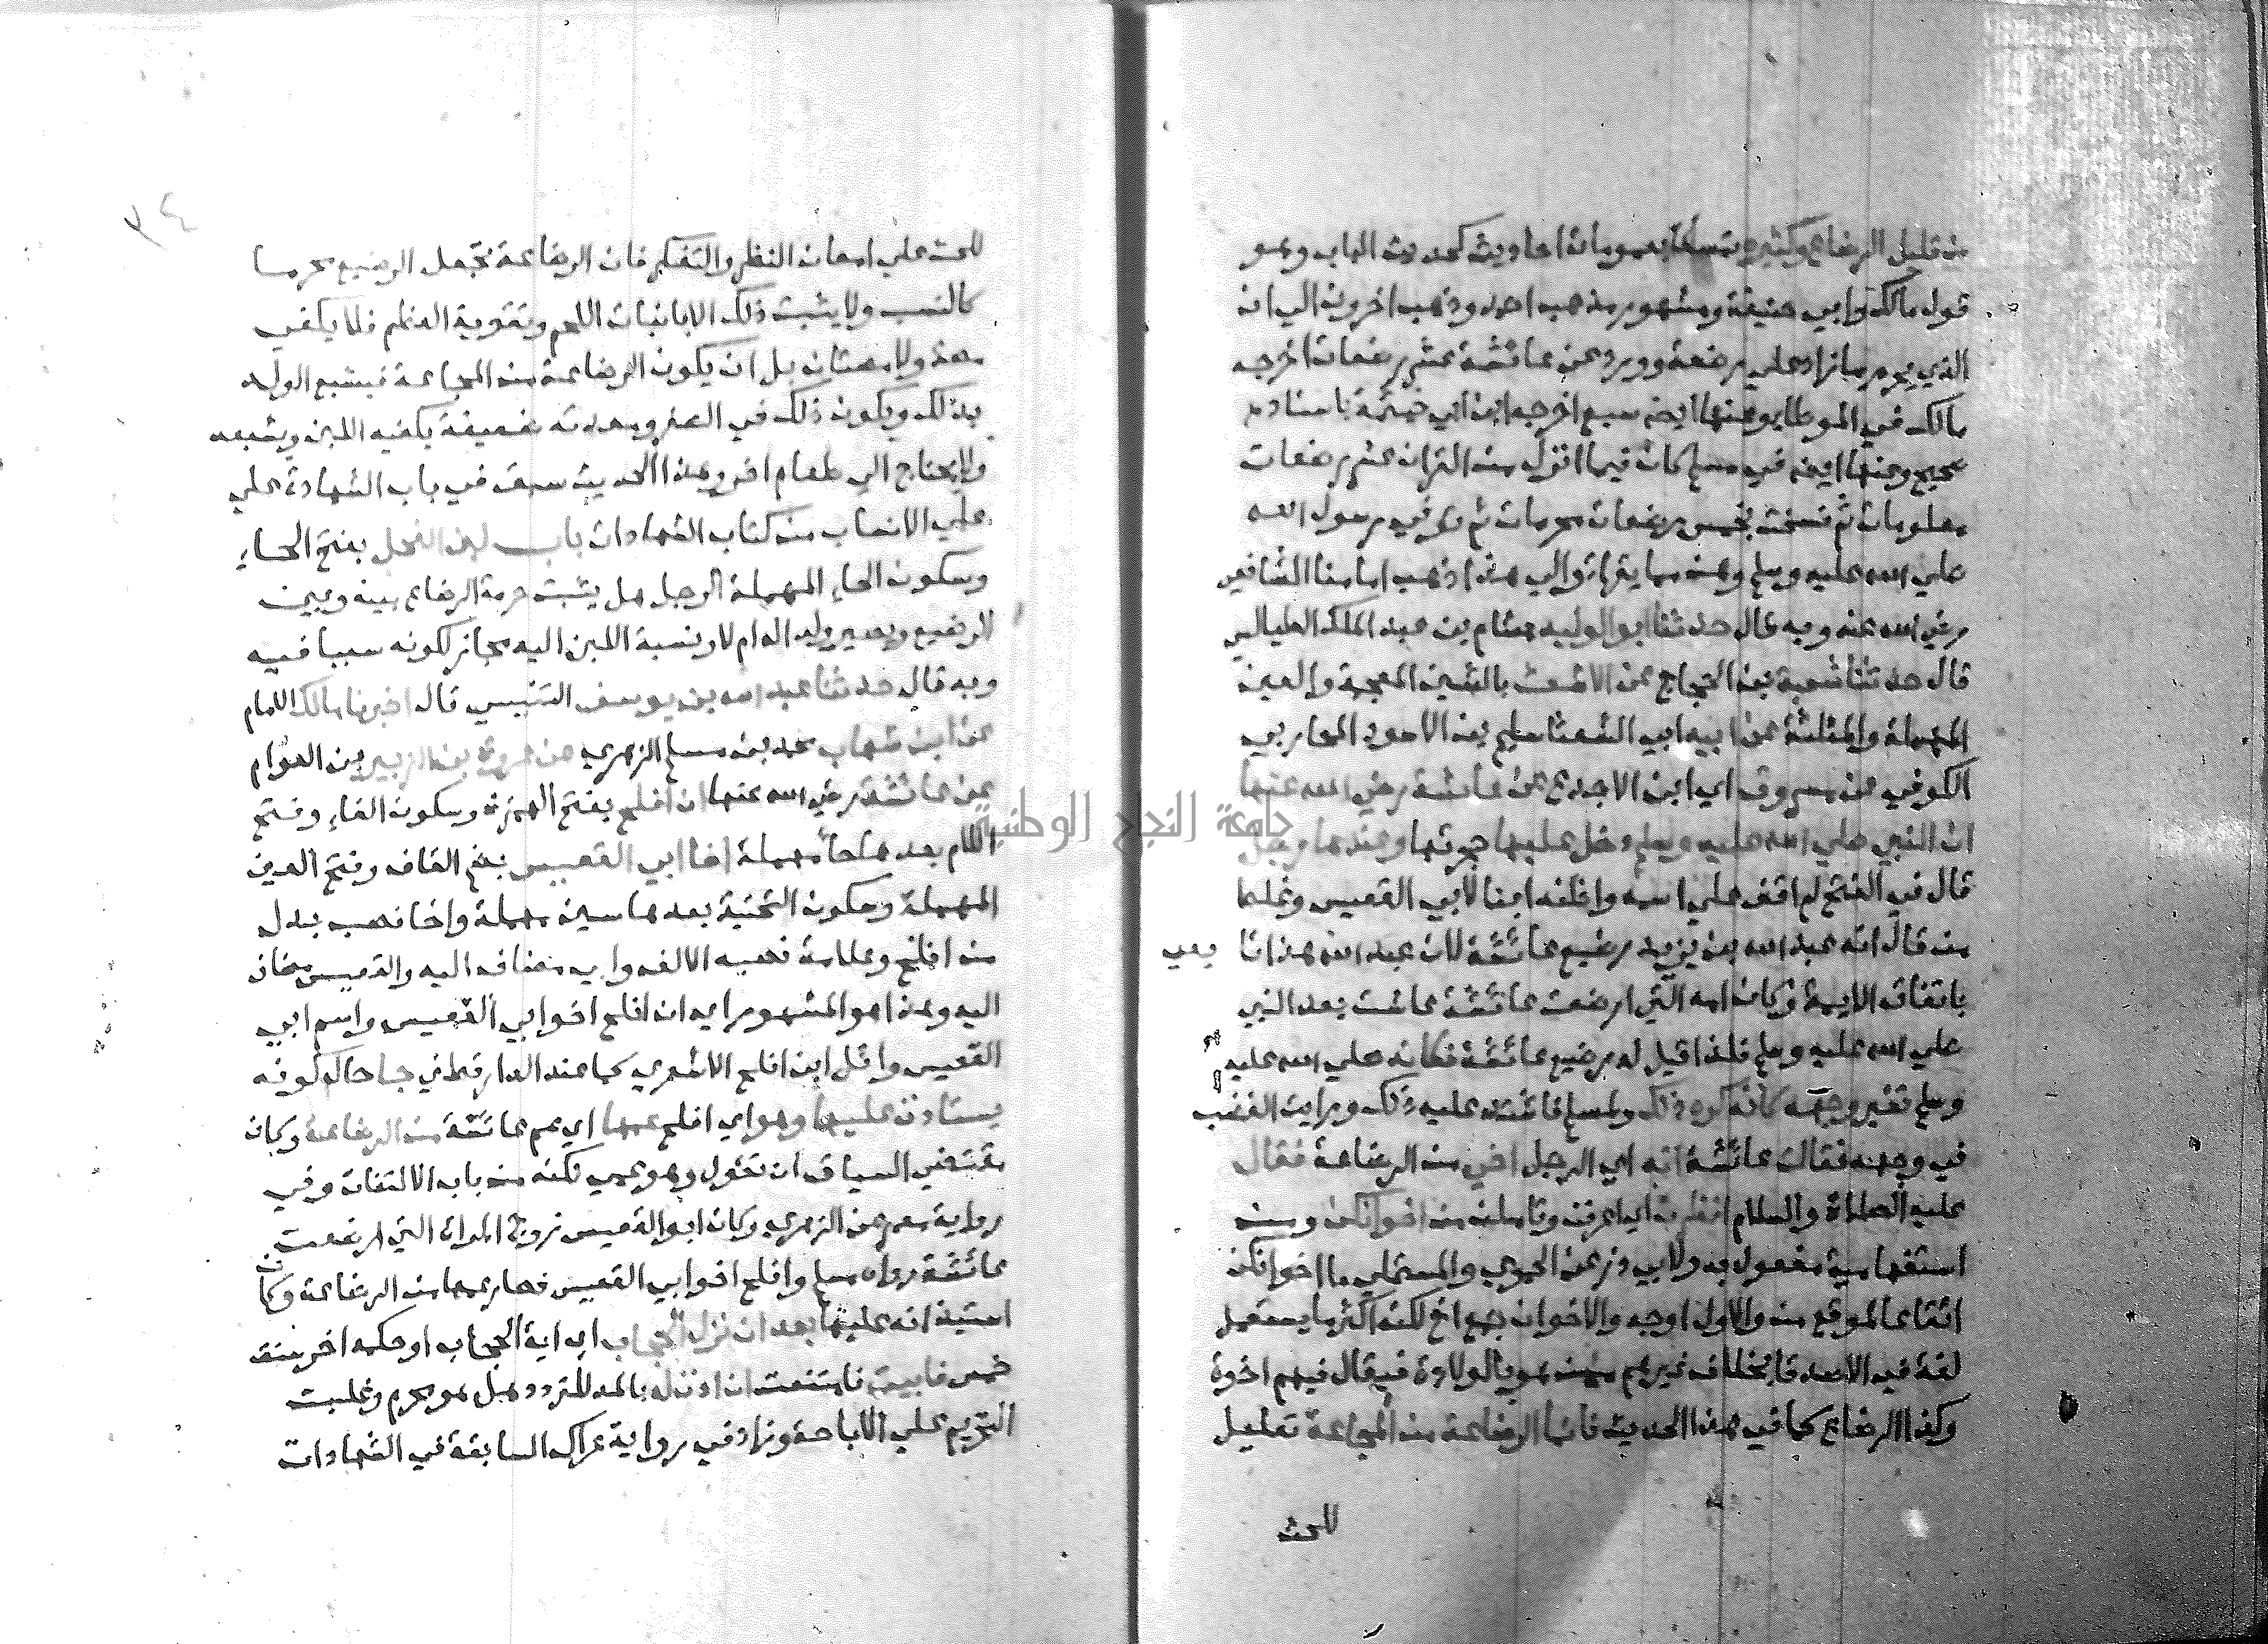 من قليل الرضاع وكثيره تمسكا بعمومات احاديث كحديث الباب وهو
قول مالك وابي حنيفة ومشهور مذهب احمد وذهب اخرون الي ان
الذي يحرم ما زاد علي رضعة وورد عن عائشة عشر رضعات اخرجه
مالك في الموطا وعنها ايضا سبع اخرجه ابن ابي خيثمة باسناد
صحيح وعنها ايضا في مسلم كان فيما انزل من القران عشر رضعات
معلومات ثم نسخت بخمس رضعات محرمات ثم توفي رسول الله
صلي الله عليه وسلم وهن مما يقرا والي هذا ذهب امامنا الشافعي
رضي الله عنه وبه قال حدثنا ابو الوليد هشام بن عبد الملك الطيالسي
قال حدثنا شعبة بن الحجاج عن الاشعث بالشين المعجمة والعين
المهملة والمثلثة عن ابيه ابي الشعثا سليم بن الاسود المحاربي
الكوفي عن مسروق اي ابن الاجدع عن عائشة رضي الله عنها
ان النبي صلي الله عليه وسلم دخل عليها حجرتها وعندها رجل
قال في الفتح لم اقف علي اسمه واظنه ابنا لابي القعيس وغلط
من قال انه عبد الله بن يزيد رضيع عائشة لان عبد الله هذا تا بعي
باتفاق الايمة وكان امه التي ارضعت عائشة عاشت بعد النبي
صلي الله عليه وسلم فلذا قيل له رضيع عائشة فكانه صلي الله عليه
وسلم تغير وجهه كانه كره ذلك ولمسلم فاشتد عليه ذلك ورايت الغضب
في وجهه فقالت عائشة انه اي الرجل اخي من الرضاعة فقال
عليه الصلاة والسلام انظرن اي اعرفن وتاملن من اخوانكن ومن
استفهامية مفعول به ولابي ذر عن الحموي والمستملي ما اخوانكن
ايقاعا لموقع من والاول اوجه والاخوان جمع اخ لكنه اكثر ما يستعمل
لغة في الاصدقا بخلاف غيرهم ممن هو بالولادة فيقال فيهم اخوة
وكذا الرضاع كما في هذا الحديث فانما الرضاعة من المجاعة تعليل
للحث
٣٤
للحث علي امعان النظر والتفكر فان الرضاعة تجعل الرضيع محرما
كالنسب ولا يثبت ذلك الا بانبات اللحم وتقوية العظم فلا يكفي
مصة ولا مصتان بل ان يكون الرضاعة من المجاعة فيشبع الولد
بذلك ويكون ذلك في الصغر ومعدته ضعيفة يكفيه اللبن ويشبعه
ولا يحتاج الي طعام اخر وهذا الحديث سبق في باب الشهادة علي
علي الانساب من كتاب الشهادات باب لبن الفحل بفتح الحاء
وسكون الحاء المهملة الرجل هل يثبت حرمة الرضاع بينه وبين
الرضيع ويصير ولدا له ام لا ونسبة اللبن اليه مجاز لكونه سببا فيه
وبه قال حدثنا عبد الله بن يوسف التنيسي قال اخبرنا مالك الامام
عن ابن شهاب محمد بن مسلم الزهري عن عروة بن الزبير بن العوام
عن عائشة رضي الله عنها ان افلح بفتح الهمزة وسكون الفاء وفتح
اللام بعدها حاء مهملة اخا ابي القعيس بضم القاف وفتح العين
المهملة وسكون التحتية بعدها سين مهملة واخا نصب بدل
من افلح وعلامة نصبه الالف وابي مضاف اليه والقعيس مضاف
اليه وهذا هو المشهور اي ان افلح اخو ابي القعيس واسم ابي
القعيس وائل ابن افلح الاشعري كما عند الدارقطني جا حال كونه
يستاذن عليها وهو اي افلح عمها اي عم عائشة من الرضاعة وكان
مقتضي السياق ان تقول وهو عمي لكنه من باب الالتفات وفي
رواية معمر عن الزهري وكان ابو القعيس زوج المراة التي ارضعت
عائشة رواه مسلم وافلح اخو ابي القعيس فصار عمها من الرضاعة وكان
استيذانه عليها بعد ان نزل الحجاب اي اية الحجاب او حكمه اخر سنة
خمس فابيت فامتنعت ان اذن له بالمد للتردد هل هو محرم وغلبت
التحريم علي الاباحة وزاد في رواية عراك السابقة في الشهادات
جامعة النجاح الوطنية